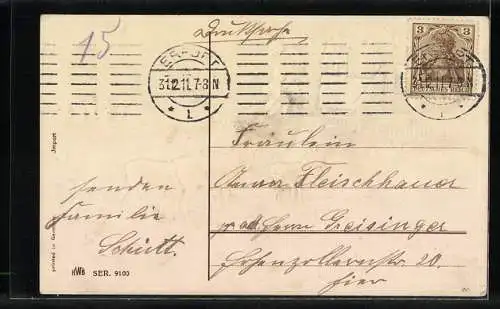 15
Drucksache
ERFURT
31.12.11.7-8 N
* 1 *
ERFURT
3 3
Deutsches Reich
Fräulein
Anna Fleischhauer
Greisinger
Hohenzollernstr 20.
hier
senden
Familie
Schütt.
Import
printed in
HWB SER. 9100